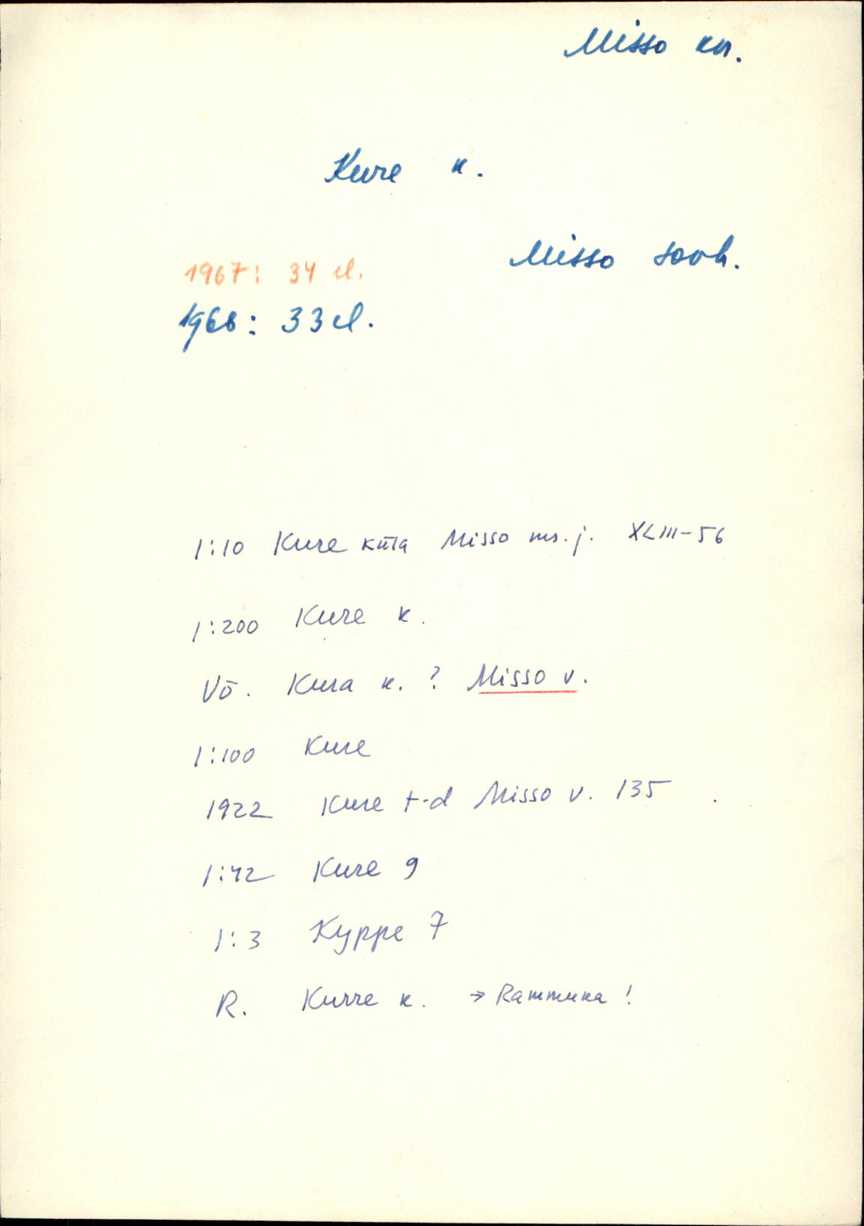 Misso kn.
Kure k.
Misso sovh.
1967: 34 el.
1968: 33 el.
1:10 Kure küla Misso ms. j. XLIII-56
1:200 Kure k.
Võ. Kura k. ? Misso v.
1:100 Kure
1922 Kure t-d Misso v. 135
1:42 Kure 9
1:3 Куррe 7
R. Kurre k. → Rammuka !